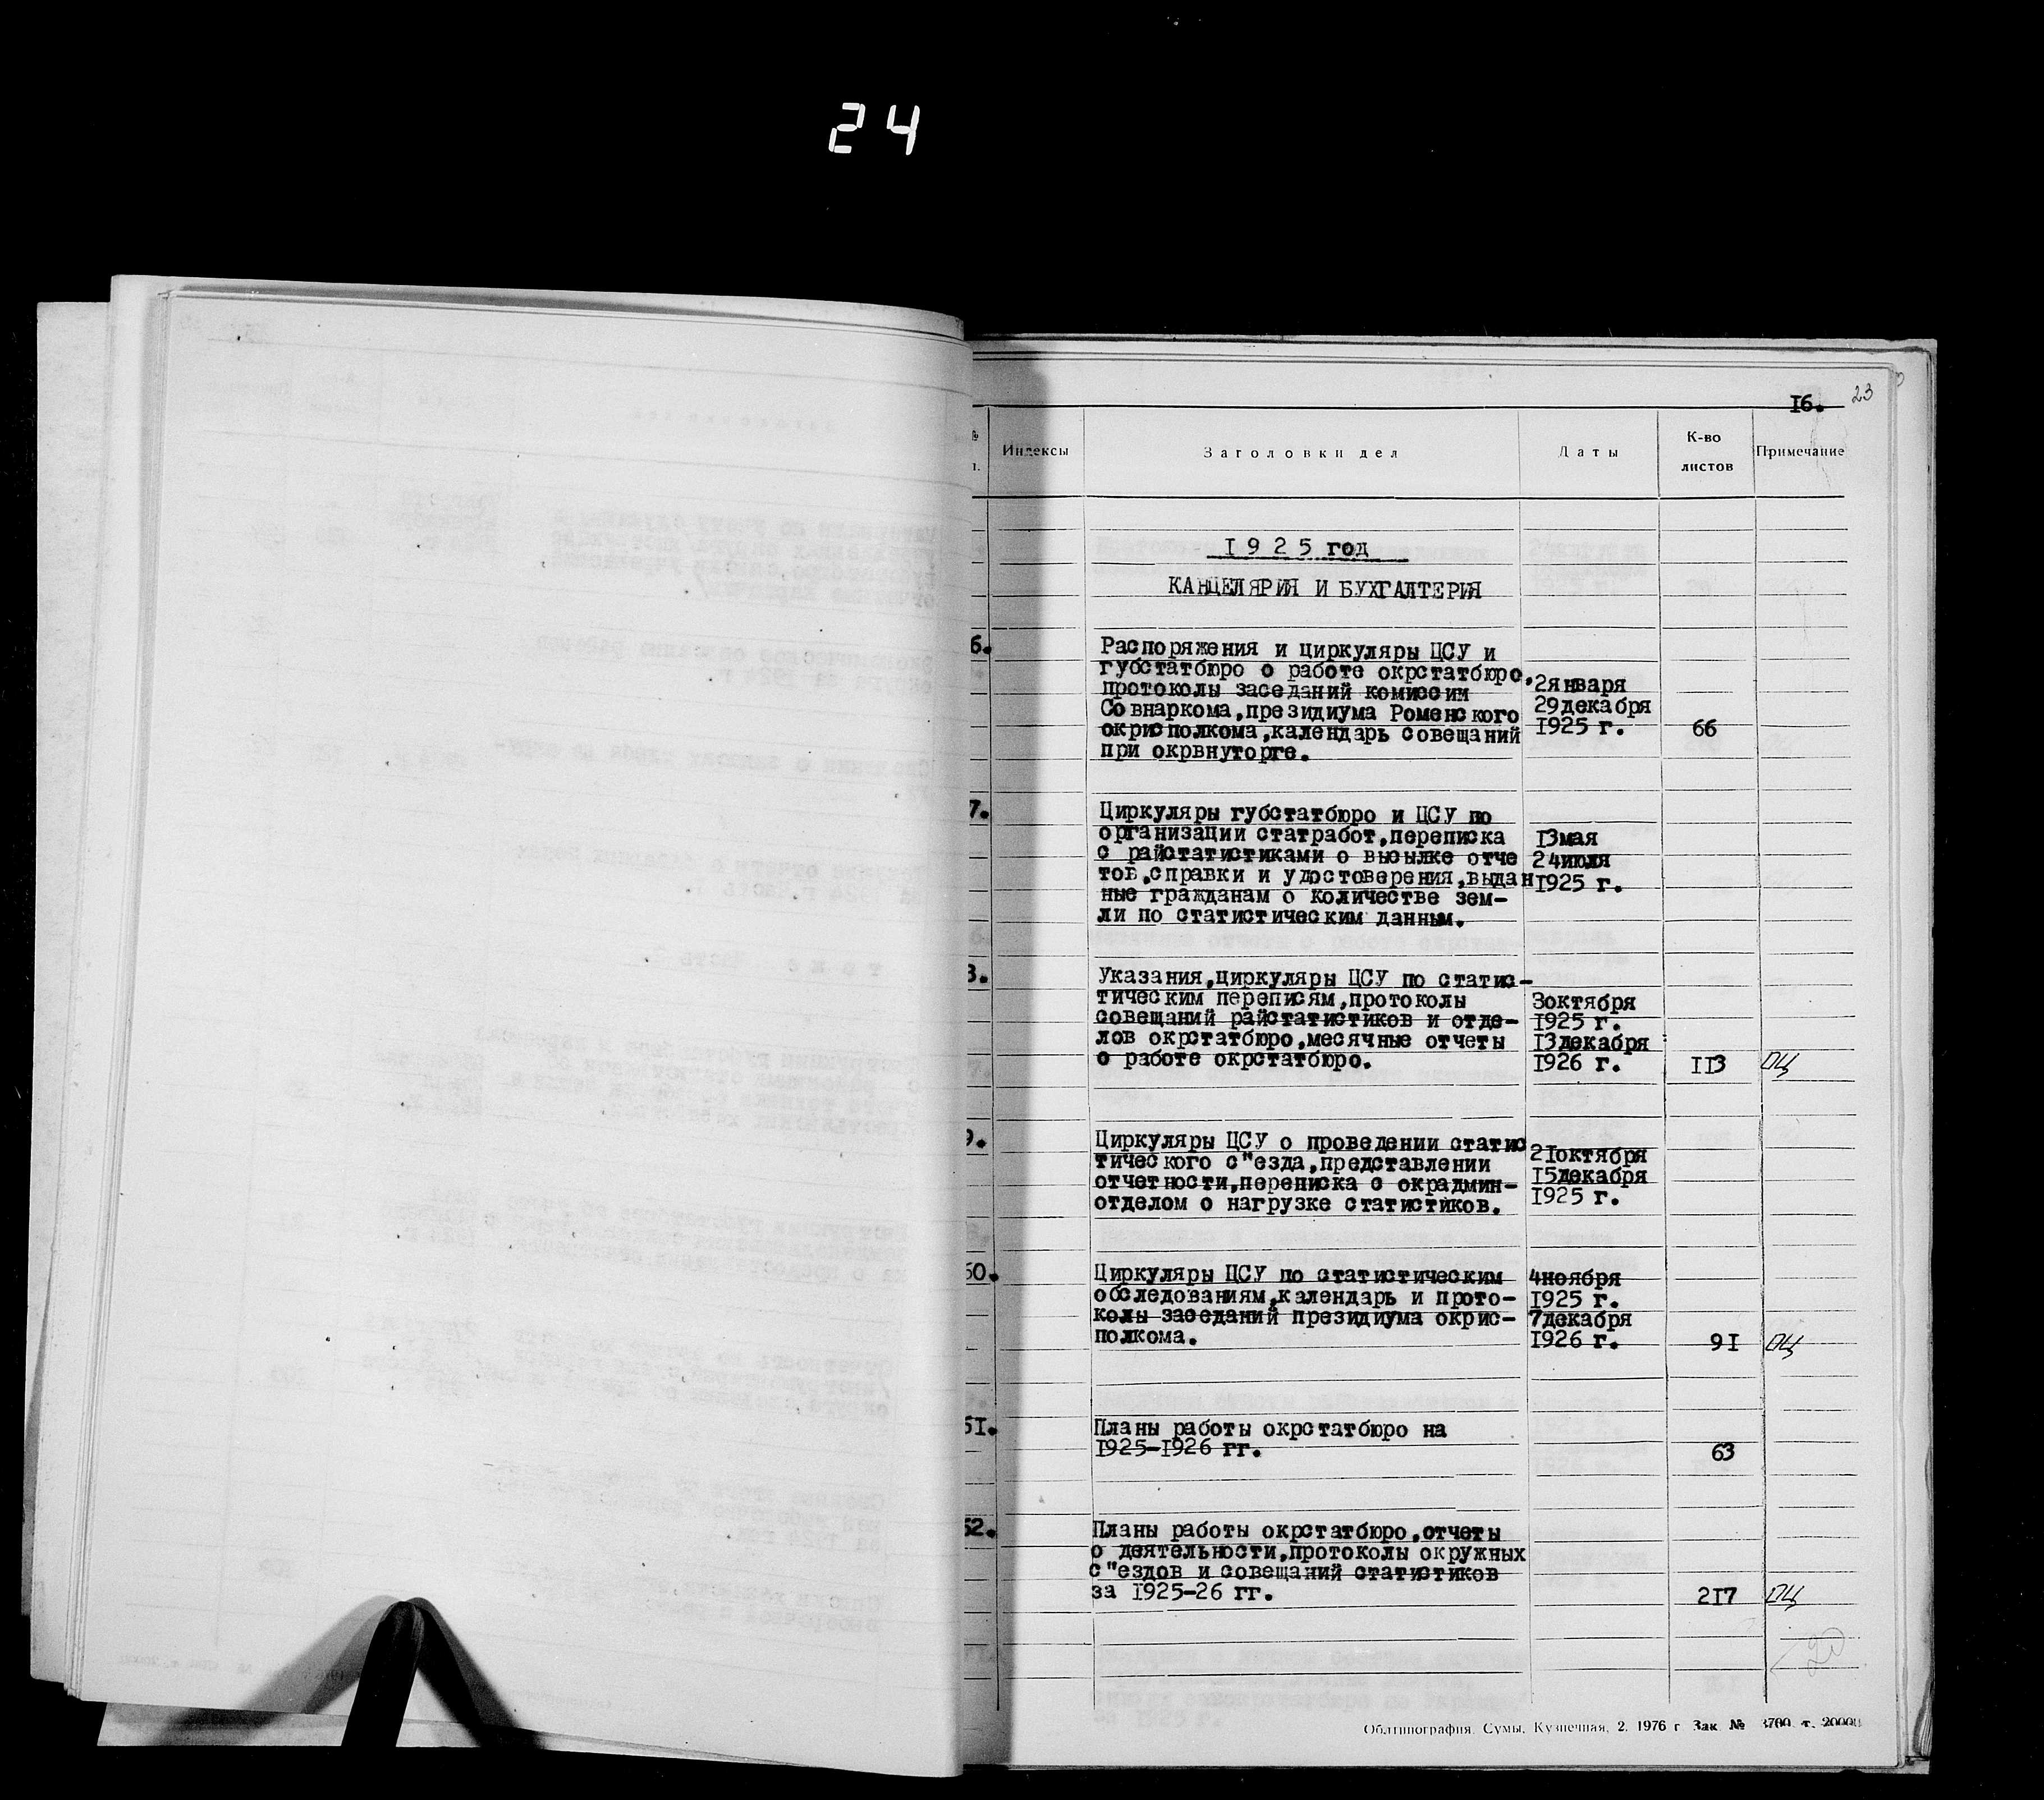 24
16. 23
№ Индексы Заголовки дел Даты К-во листов Примечание
1925 год
КАНЦЕЛЯРИЯ И БУХГАЛТЕРИЯ
6. Распоряжения и циркуляры ЦСУ и
губстатбюро о работе окрстатбюро,
протоколы заседаний комиссии 2января
Совнаркома,президиума Роменского 29декабря
окрисполкома,календарь совещаний 1925 г. 66
при окрвнуторге.
7. Циркуляры губстатбюро и ЦСУ по
организации статработ,переписка 13мая
с райстатистиками о высылке отче 24июля
тов,справки и удостоверения,выдан 1925 г.
ные гражданам о количестве зем-
ли по статистическим данным.
8. Указания,циркуляры ЦСУ по статис-
тическим переписям,протоколы 3октября
совещаний райстатистиков и отде- 1925 г.
лов окрстатбюро,месячные отчеты 13декабря
о работе окрстатбюро. 1926 г. 113 ОЦ
9. Циркуляры ЦСУ о проведении статис
тического с"езда,представлении 21октября
отчетности,переписка с окрадмин- 15декабря
отделом о нагрузке статистиков. 1925 г.
60. Циркуляры ЦСУ по статистическим 4ноября
обследованиям,календарь и прото- 1925 г.
колы заседаний президиума окрис- 7декабря
полкома. 1926 г. 91 ОЦ
61. Планы работы окрстатбюро на
1925-1926 гг. 63
62. Планы работы окрстатбюро,отчеты
о деятельности,протоколы окружных
с"ездов и совещаний статистиков
за 1925-26 гг. 217 ОЦ
20
Облтипография, Сумы, Кузнечная, 2. 1976 г Зак. № 3700 т. 20000